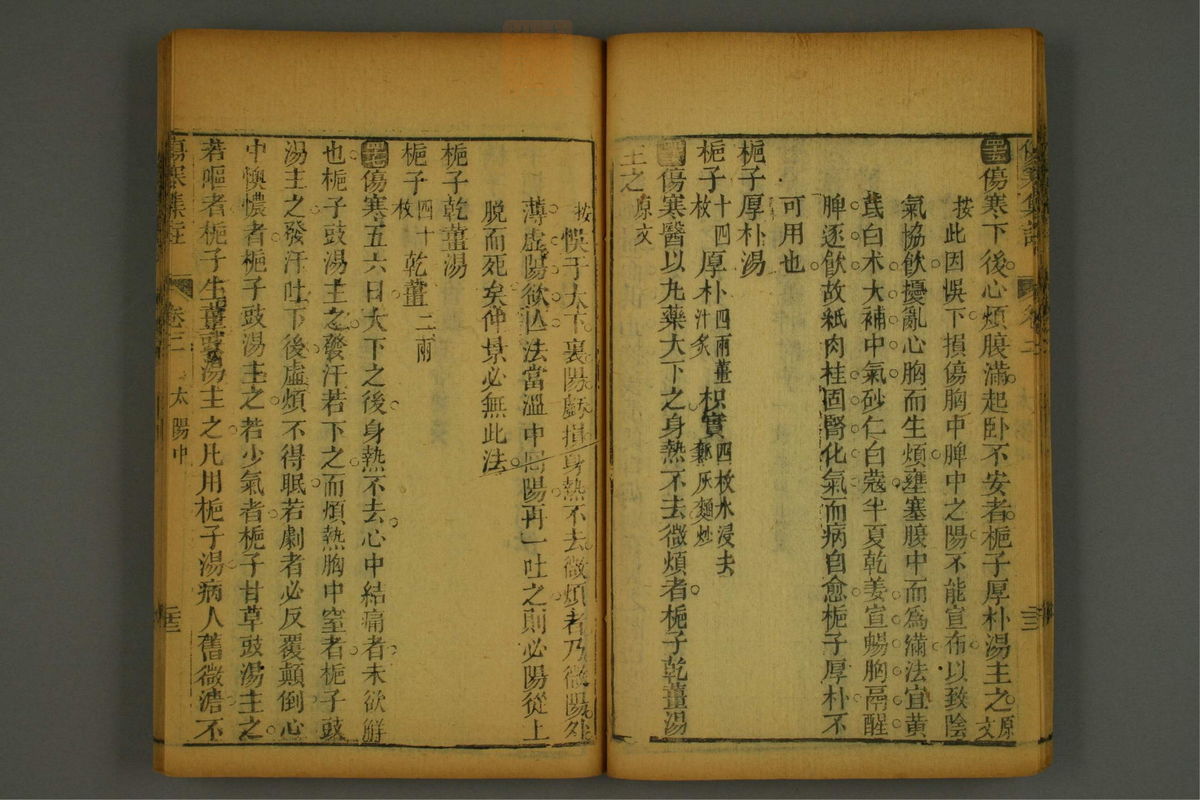 傷寒下後心煩腹滿起卧不安者梔子厚朴湯主之原文
按此因悞下損傷胸中脾中之陽不能宣布以致陰
氣協飲擾亂心胸而生煩壅塞腹中而爲滿法宜黃
茋白朮大補中氣砂仁白蔻半夏乾姜宣暢胸膈醒
脾逐飲故紙肉桂固腎化氣而病自愈梔子厚朴不
可用也
梔子厚朴湯
梔子十四枚 厚朴四兩薑汁炙 枳實四枚水浸去穰灰麵炒
傷寒醫以九藥大下之身熱不去微煩者梔子乾薑湯
主之原文
按悞于大下裏陽虧損身熱不去微煩者乃微陽外
薄虛陽欲亾法當溫中囘陽再一吐之則必陽從上
脱而死矣仲景必無此法
梔子乾薑湯
梔子四十枚 乾薑二兩
傷寒五六日大下之後身熱不去心中結痛者未欲解
也梔子豉湯主之發汗若下之而煩熱胸中窒者梔子豉
湯主之發汗吐下後虛煩不得眠若劇者必反覆顛倒心
中懊憹者梔子豉湯主之若少氣者梔子甘草豉湯主之
若嘔者梔子生薑豉湯主之凡用梔子湯病人舊微溏不
傷寒集註 卷二 太陽中